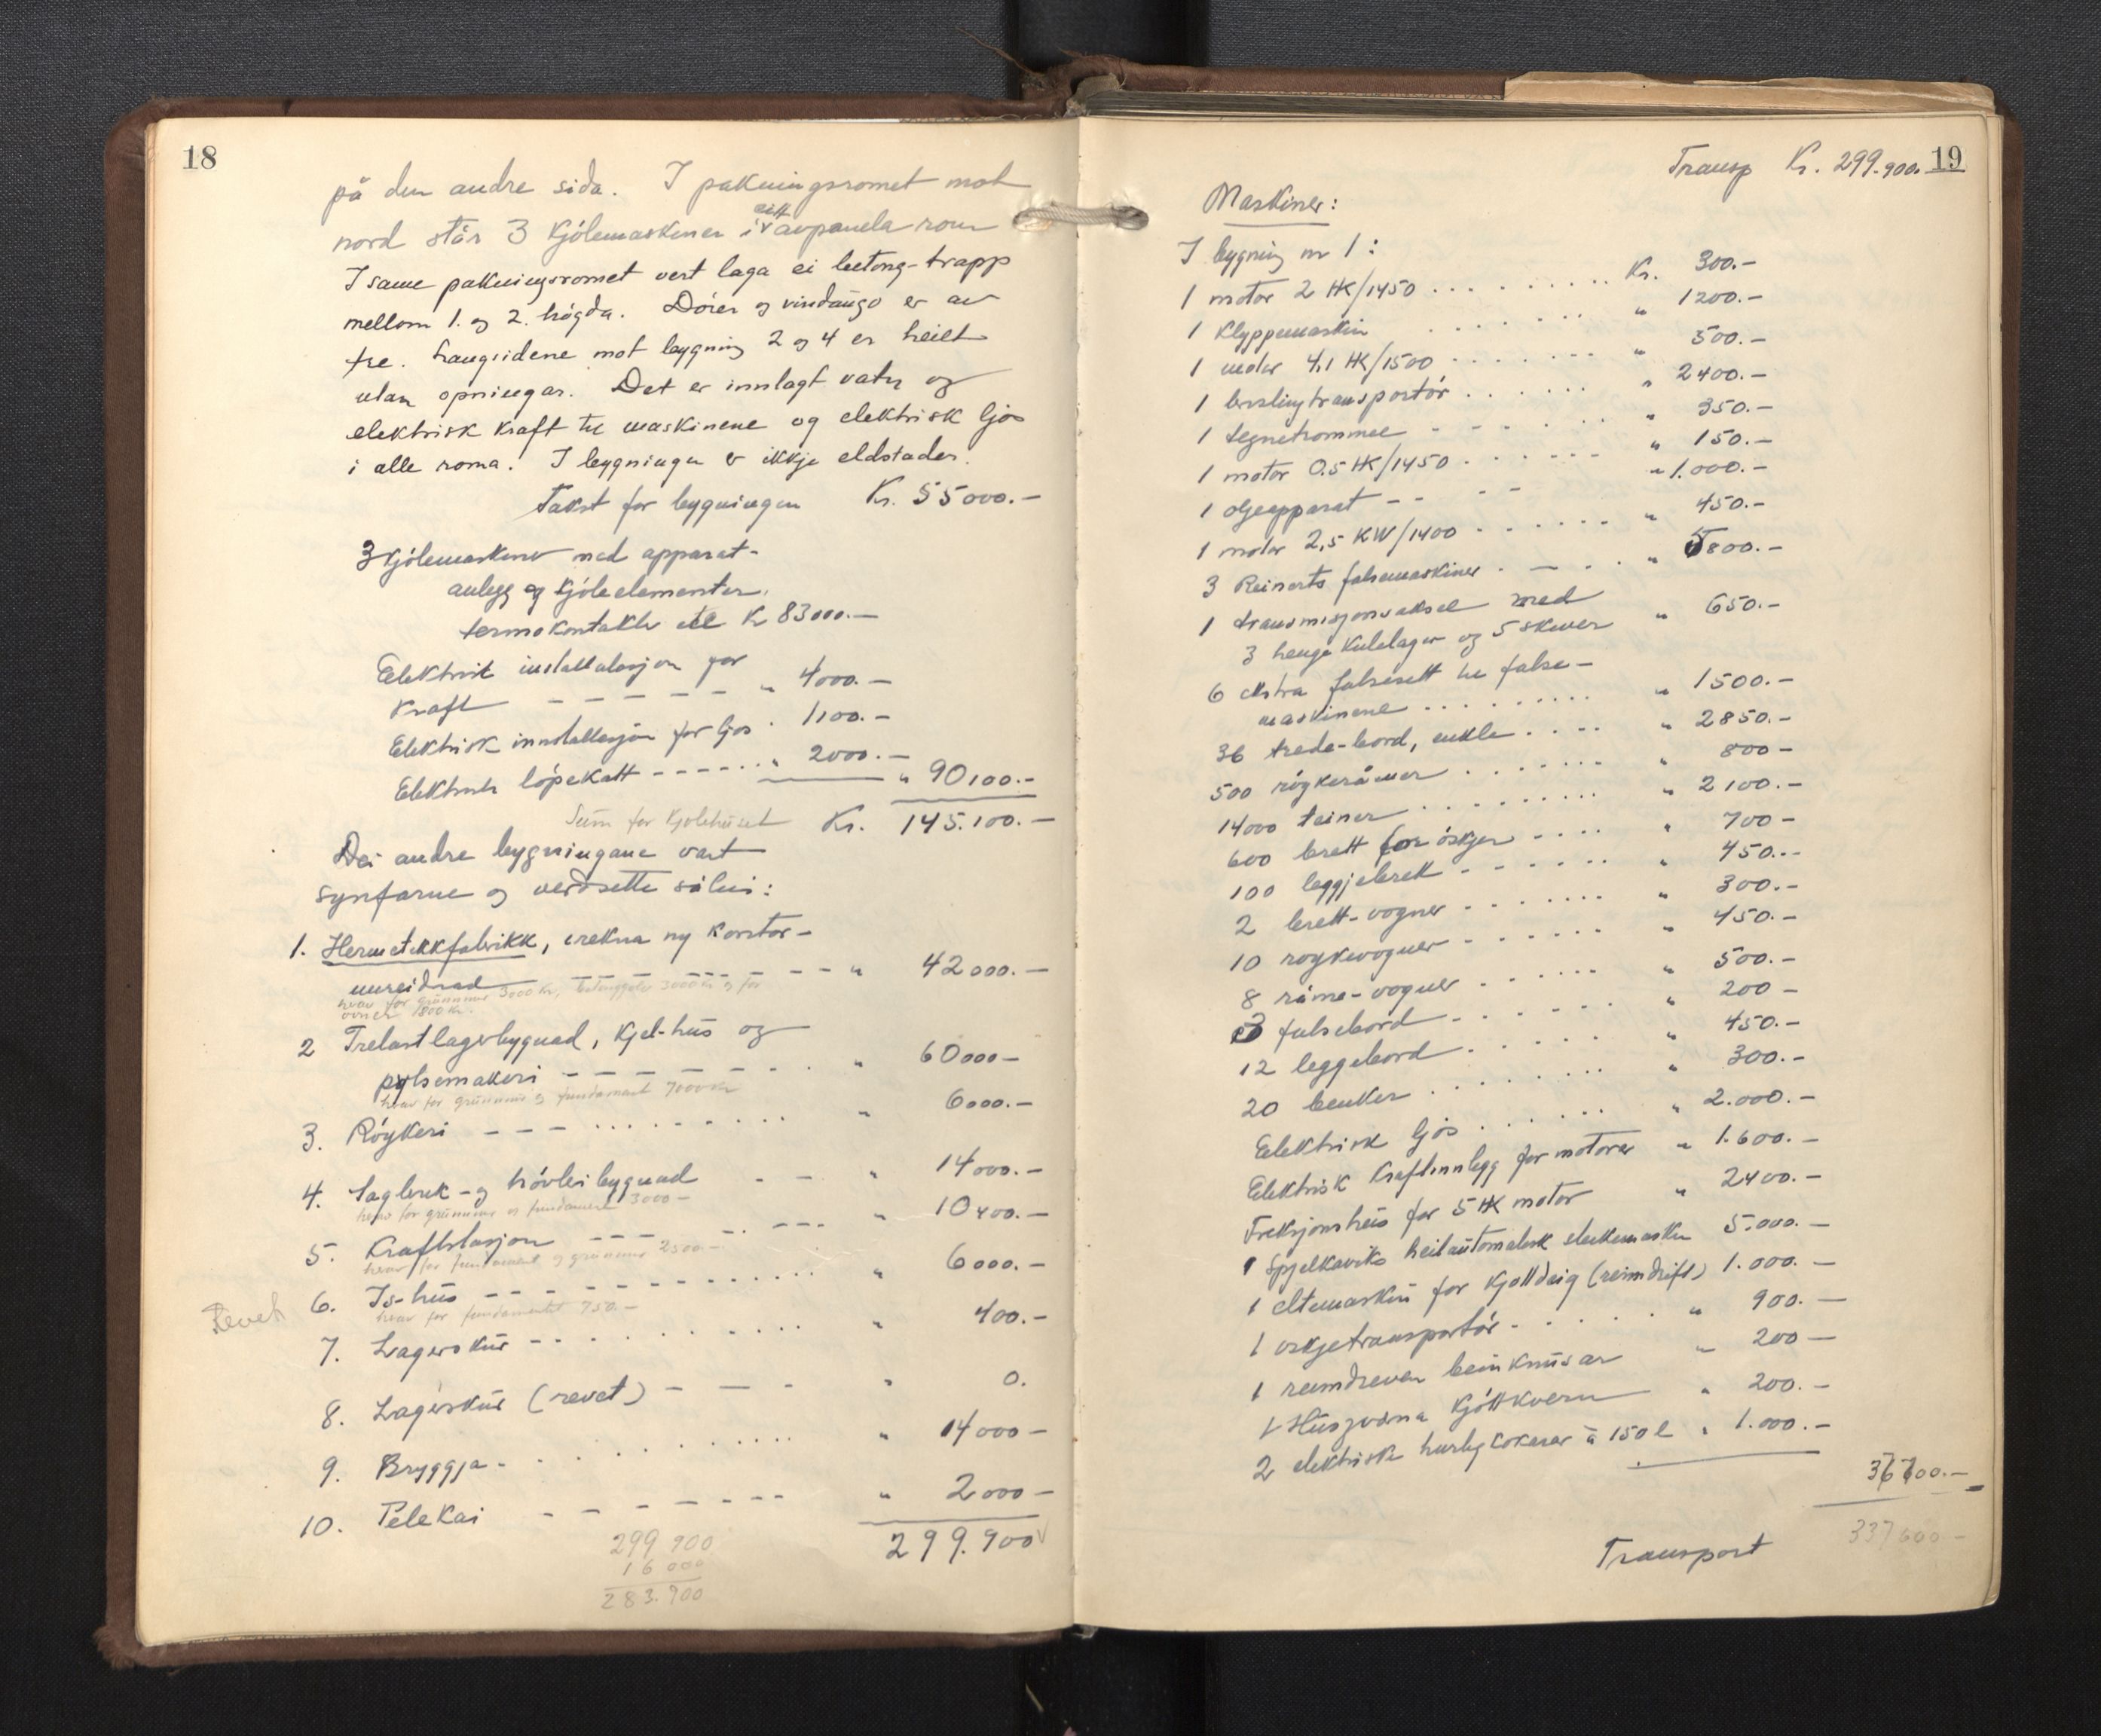 18
på den andre sida. I pakningsromet mot
nord står 3 kjólemaskiner i eitt avpanela rom
I same pakningsromet vert laga ei betong-trapp
mellom 1. og 2. högda. Dóier og vindaugo er av
tre. Langsidene mot bygning 2 og 4 er heilt
utan opningar. Det er innlagt vatn og
elektrisk kraft til maskinene og elektrisk ljos
i alle roma. I bygningen er ikkje eldstader.
Takst for bygningen Kr. 55000.-
3 kjólemaskiner med apparat-
anlegg og kjóleelementer,
termokontakter etc Kr 83000.-
Elektrisk installasjon for
Kraft - - - - - " 4000.-
Elektrisk innstallasjon for ljos . 1100.-
Elektrisk löpekatt - - - - - " 2000.-
" 90100.-
Sum for Kjolehuset Kr. 145.100.-
Dei andre bygningane vart
synfarne og verdsette såleis:
1. Hermetikkfabrikk, irekna ny kontor-
innreidnad - - - - - " 42000.-
herav for grunnmur 3000 kr, betonggolv 3000 kr og for
ovner 1800 kr.
2 Trelastlagerbygnad, Kjel-hus og
pylsemakeri - - - - - " 60000-
herav for grunnmur og fundament 7000 kr
3. Róykeri - - - . . . . . " 6000.-
4. Sagbruk- og hóvleribygnad - - " 14000.-
herav for grunnmur og fundament 3000-
5. Kraftstasjon - - - - - - " 10400.-
herav for fundament og grunnmur 2500.-
6. Is-hus - - - - - . . . . " 6000.-
herav for fundamentet 750.-
Revet
7. Lagerskur - - . . . . . . " 400.-
8. Lagerskur (revet) - - - " 0.
9. Bryggja . . . . . . . " 14000-
10. Pelekai - - - - - - " 2000-
299.900
299 900
16 000
283.900
19
Transp Kr. 299.900.
Maskiner:
I bygning nr 1:
1 motor 2 HK/1450 . . . . . . Kr. 300.-
1 Klyppemaskin . . . . . " 1200.-
1 motor 4,1 HK/1500 . . . . . " 500.-
1 brislingtransportór . . . . " 2400.-
1 tegnetrommel - - - - . . " 350.-
1 motor 0.5 HK/1450 . . . . . " 150.-
1 oljeapparat - - - - " 1.000.-
1 motor 2,5 KW/1400 . . . . . " 450.-
3 Reinerts falsemaskiner . - . . " 5800.-
1 transmisjonsaksel med
3 henge kulelager og 5 skiver " 650.-
6 ekstra falsesett til false-
maskinene . . . . . . . " 1500.-
36 træde-bord, enkle . . . . " 2850.-
500 röykerámer . . . . . . " 800-
14000 teiner . . . . . . . " 2100.-
600 brett for óskjer - . . . " 700-
100 leggjebrett - - - . . . " 450.-
2 brett-vogner . . . . . . " 300.-
10 roykvogner . . . . . . " 450.-
8 ráme-vogner . . . . . " 500.-
3 falsebord . . . . . . " 200-
12 leggebord . . . . . " 450.-
20 benker . . . . . . . " 300.-
Elektrisk ljos . . . . . " 2.000.-
Elektrisk Kraftinnlegg for motorer " 1.600.-
Freksjonshus for 5 HK motor " 2400.-
1 Spjelkaviks heilautomatisk stikkemaskin 5.000.-
1 eltemaskin for kjottdeig (reimdrift) 1.000.-
1 oskjetransportór . . . . " 900.-
1 reimdreven beinknusar " 200-
1 Husqvarna kjóttkvern " 200.-
2 elektriske hurtigkokarar à 150 l " 1.000.-
37700.-
Transport 337600-